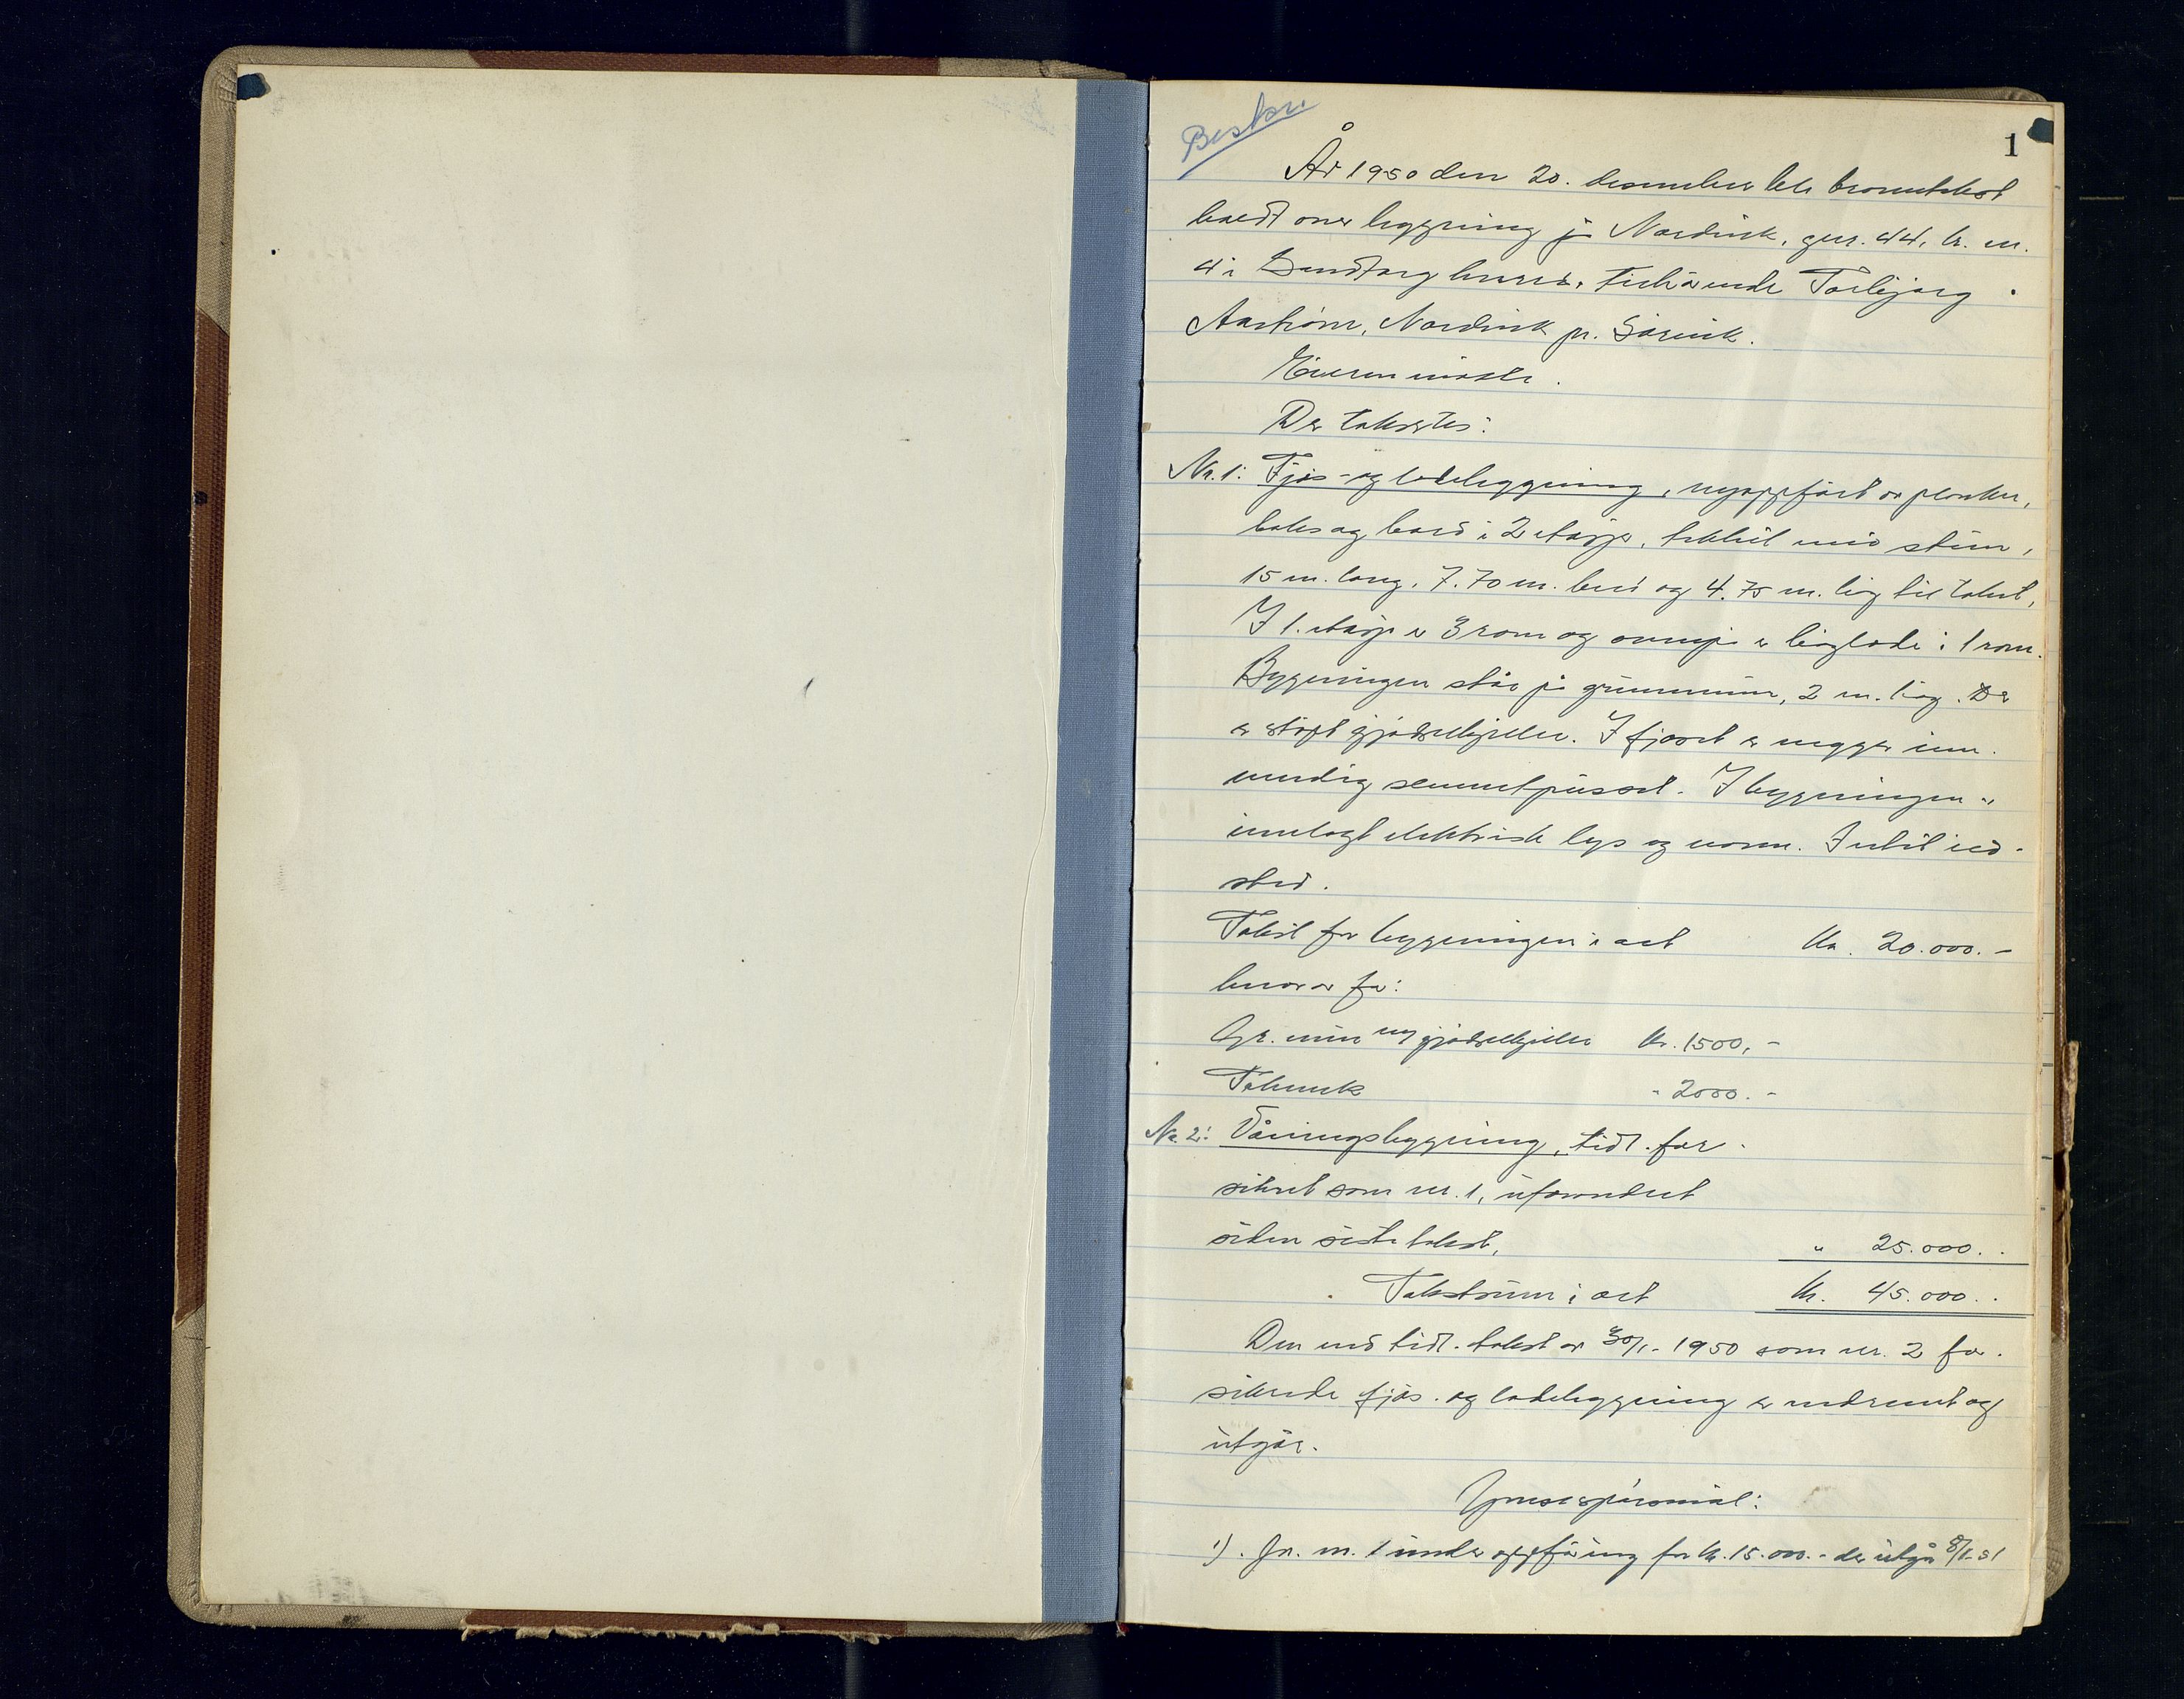 1
År 1950 den 20. desember ble branntakst
holdt over bygning på Nordvik, gnr. 44, br. nr.
4 i Sandtorg herred, tilhørende Torbjørg
Aastrøm, Nordvik pr. Sørvik.
Eieren møtte.
Der takseres:
Nr. 1: Fjøs- og ladebygning, nyoppført av planker,
boks og bord i 2 etasjer, tekket med stein,
15 m. lang, 7.70 m. bred og 4.75 m. høy til takst,
I 1. etasje er 3 rom og ovenpå er høylade i 1 rom.
Bygningen står på grunnmur, 2 m. høy. Der
er støpt gjødselkjeller. I fjøset er vegger inn-
vendig sementpusset. I bygningen er
innlagt elektrisk lys og vann. Intet ild-
sted.
Takst for bygningen i alt Kr. 20.000.-
herav for:
Gr. mur og gjødselkjeller Kr. 1500,-
Takverk - 2000.-
Nr. 2: Våningsbygning, tidl. for-
sikret som nr. 1, uforandret
siden siste takst, " 25.000.-
Takstsum i alt Kr. 45.000.-
Den ved tidl. takst av 30/1-1950 som nr. 2 for-
sikrede fjøs- og ladebygning er nedrevet og
utgår.
1). Gr. nr. 1 under oppføring for kr. 15.000.- der utgår 8/1-51